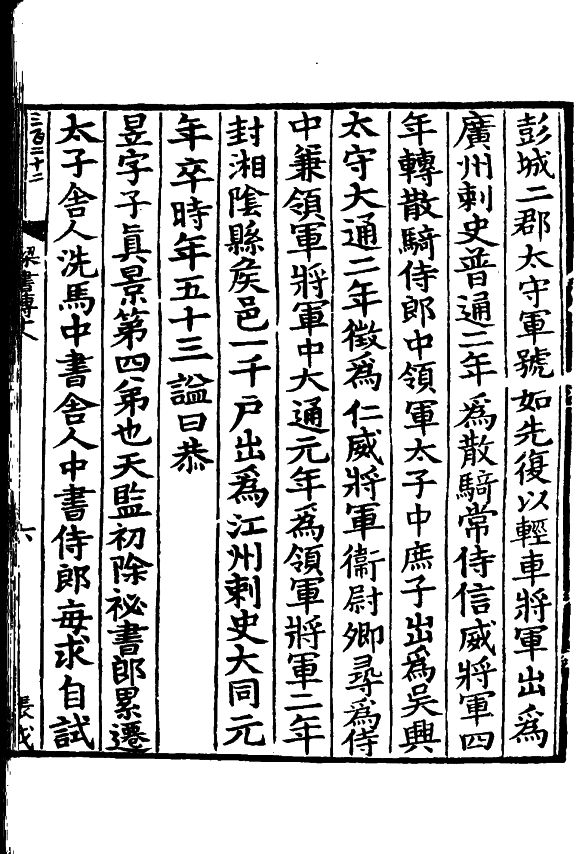 彭城二郡太守軍號如先復以輕車將軍出爲
廣州刺史普通二年爲散騎常侍信威將軍四
年轉散騎侍郎中領軍太子中庶子出爲吳興
太守大通二年徵爲仁威將軍衞尉卿尋爲侍
中兼領軍將軍中大通元年爲領軍將軍二年
封湘隂縣矦邑一千戶出爲江州刺史大同元
年卒時年五十三謚曰恭
昱字子眞景第四弟也天監初除祕書郎累遷
太子舍人洗馬中書舍人中書侍郎每求自試
三百二十二
梁書傳十八
六